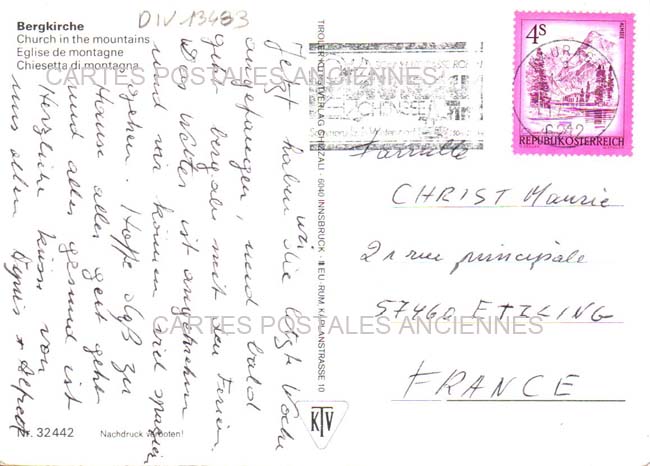 DIV 13483
Bergkirche
Church in the mountains
Eglise de montagne
Chiesetta di montagna
CARTES POSTALES ANCIENNES
Jetzt haben wir die letzte Woche
angefangen, und bald
geht bergab mit den Ferien.
Das Wetter ist angenehm
und wir können viel spazieren
gehen. Hoffe daß zu
Hause alles gut geht
und alles gesund ist
Herzliche küsse von
uns allen Agnes + Alfred
Nr. 32442
Nachdruck verboten!
TIROLER KUNSTVERLAG CHIZZALI 6040 INNSBRUCK - NEU RUM KAPLANSTRASSE 10
KTV
4S
ALMSEE
REPUBLIK ÖSTERREICH
Famille
CHRIST Maurice
21 rue principale
57460 ETZLING
FRANCE
CARTES POSTALES ANCIENNES